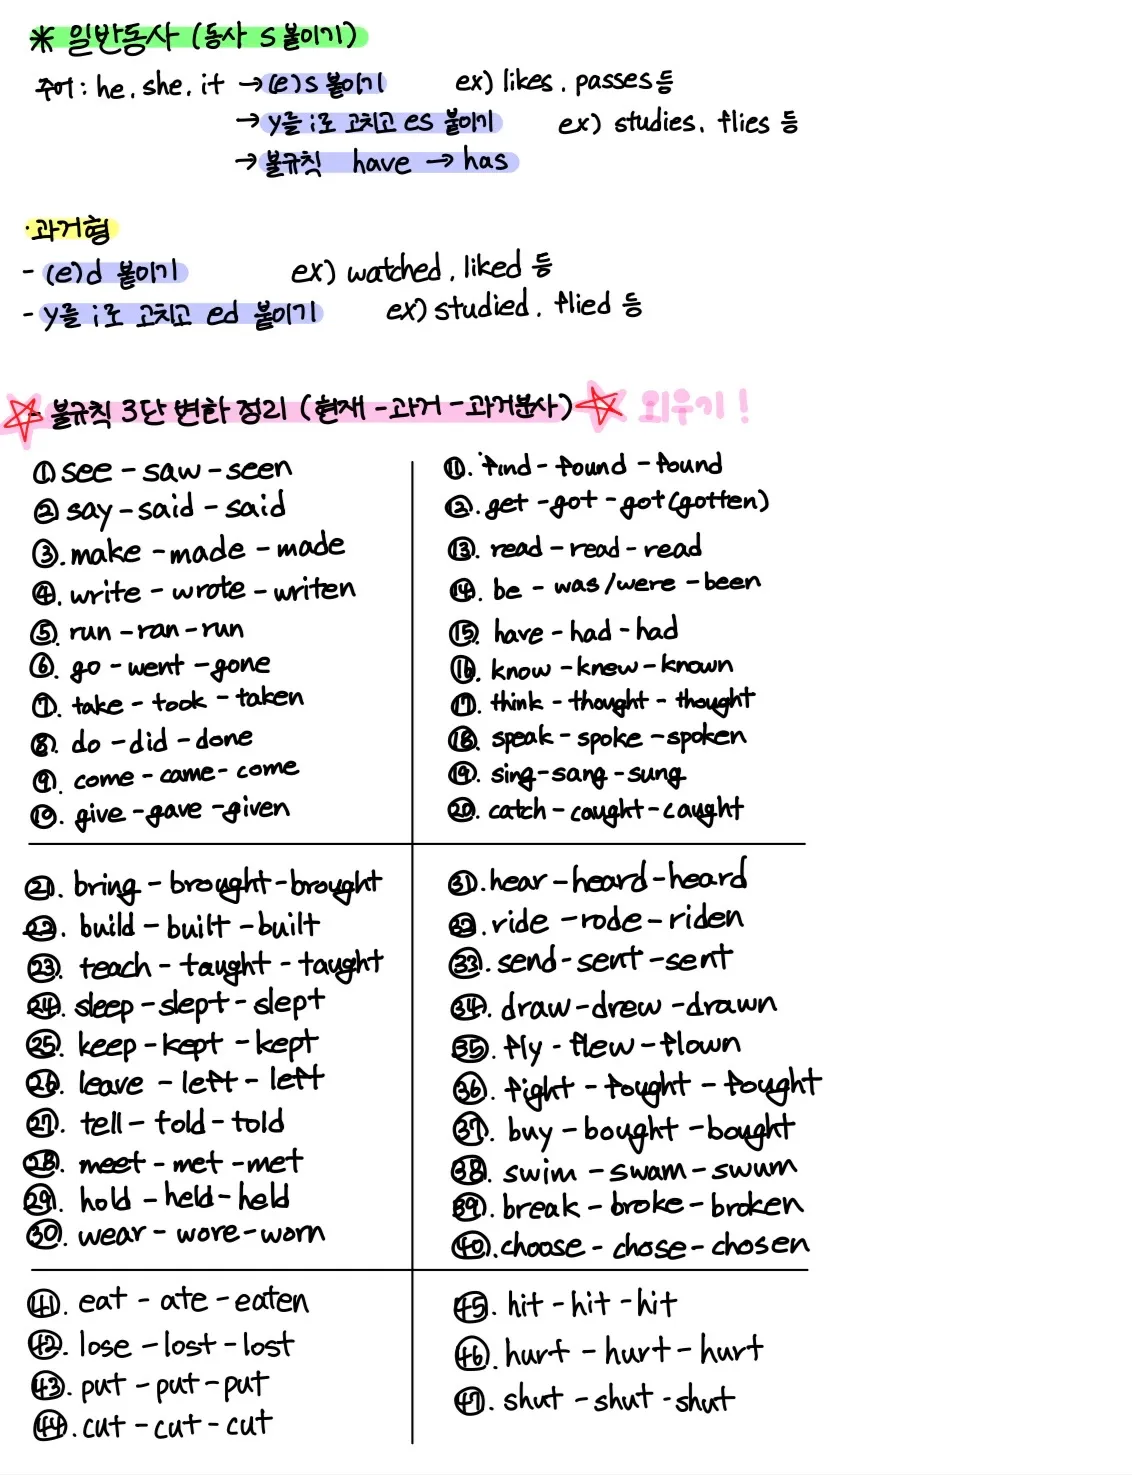 * 일반동사 (동사 s 붙이기)
주어: he, she, it → (e)s 붙이기 ex) likes, passes 등
→ y를 i로 고치고 es 붙이기 ex) studies, flies 등
→ 불규칙 have → has
·과거형
- (e)d 붙이기 ex) watched, liked 등
- y를 i로 고치고 ed 붙이기 ex) studied, flied 등
- 불규칙 3단 변화 정리 (현재 - 과거 - 과거분사) 외우기!
① see - saw - seen
② say - said - said
③. make - made - made
④. write - wrote - writen
⑤. run - ran - run
⑥. go - went - gone
⑦. take - took - taken
⑧. do - did - done
⑨. come - came - come
⑩. give - gave - given
⑪. find - found - found
⑫. get - got - got (gotten)
⑬. read - read - read
⑭. be - was/were - been
⑮. have - had - had
⑯. know - knew - known
⑰. think - thought - thought
⑱. speak - spoke - spoken
⑲. sing - sang - sung
⑳. catch - caught - caught
㉑. bring - brought - brought
㉒. build - built - built
㉓. teach - taught - taught
㉔. sleep - slept - slept
㉕. keep - kept - kept
㉖. leave - left - left
㉗. tell - told - told
㉘. meet - met - met
㉙. hold - held - held
㉚. wear - wore - worn
㉛. hear - heard - heard
㉜. ride - rode - riden
㉝. send - sent - sent
㉞. draw - drew - drawn
㉟. fly - flew - flown
㊱. fight - fought - fought
㊲. buy - bought - bought
㊳. swim - swam - swum
㊴. break - broke - broken
㊵. choose - chose - chosen
㊶. eat - ate - eaten
㊷. lose - lost - lost
㊸. put - put - put
㊹. cut - cut - cut
㊺. hit - hit - hit
㊻. hurt - hurt - hurt
㊼. shut - shut - shut